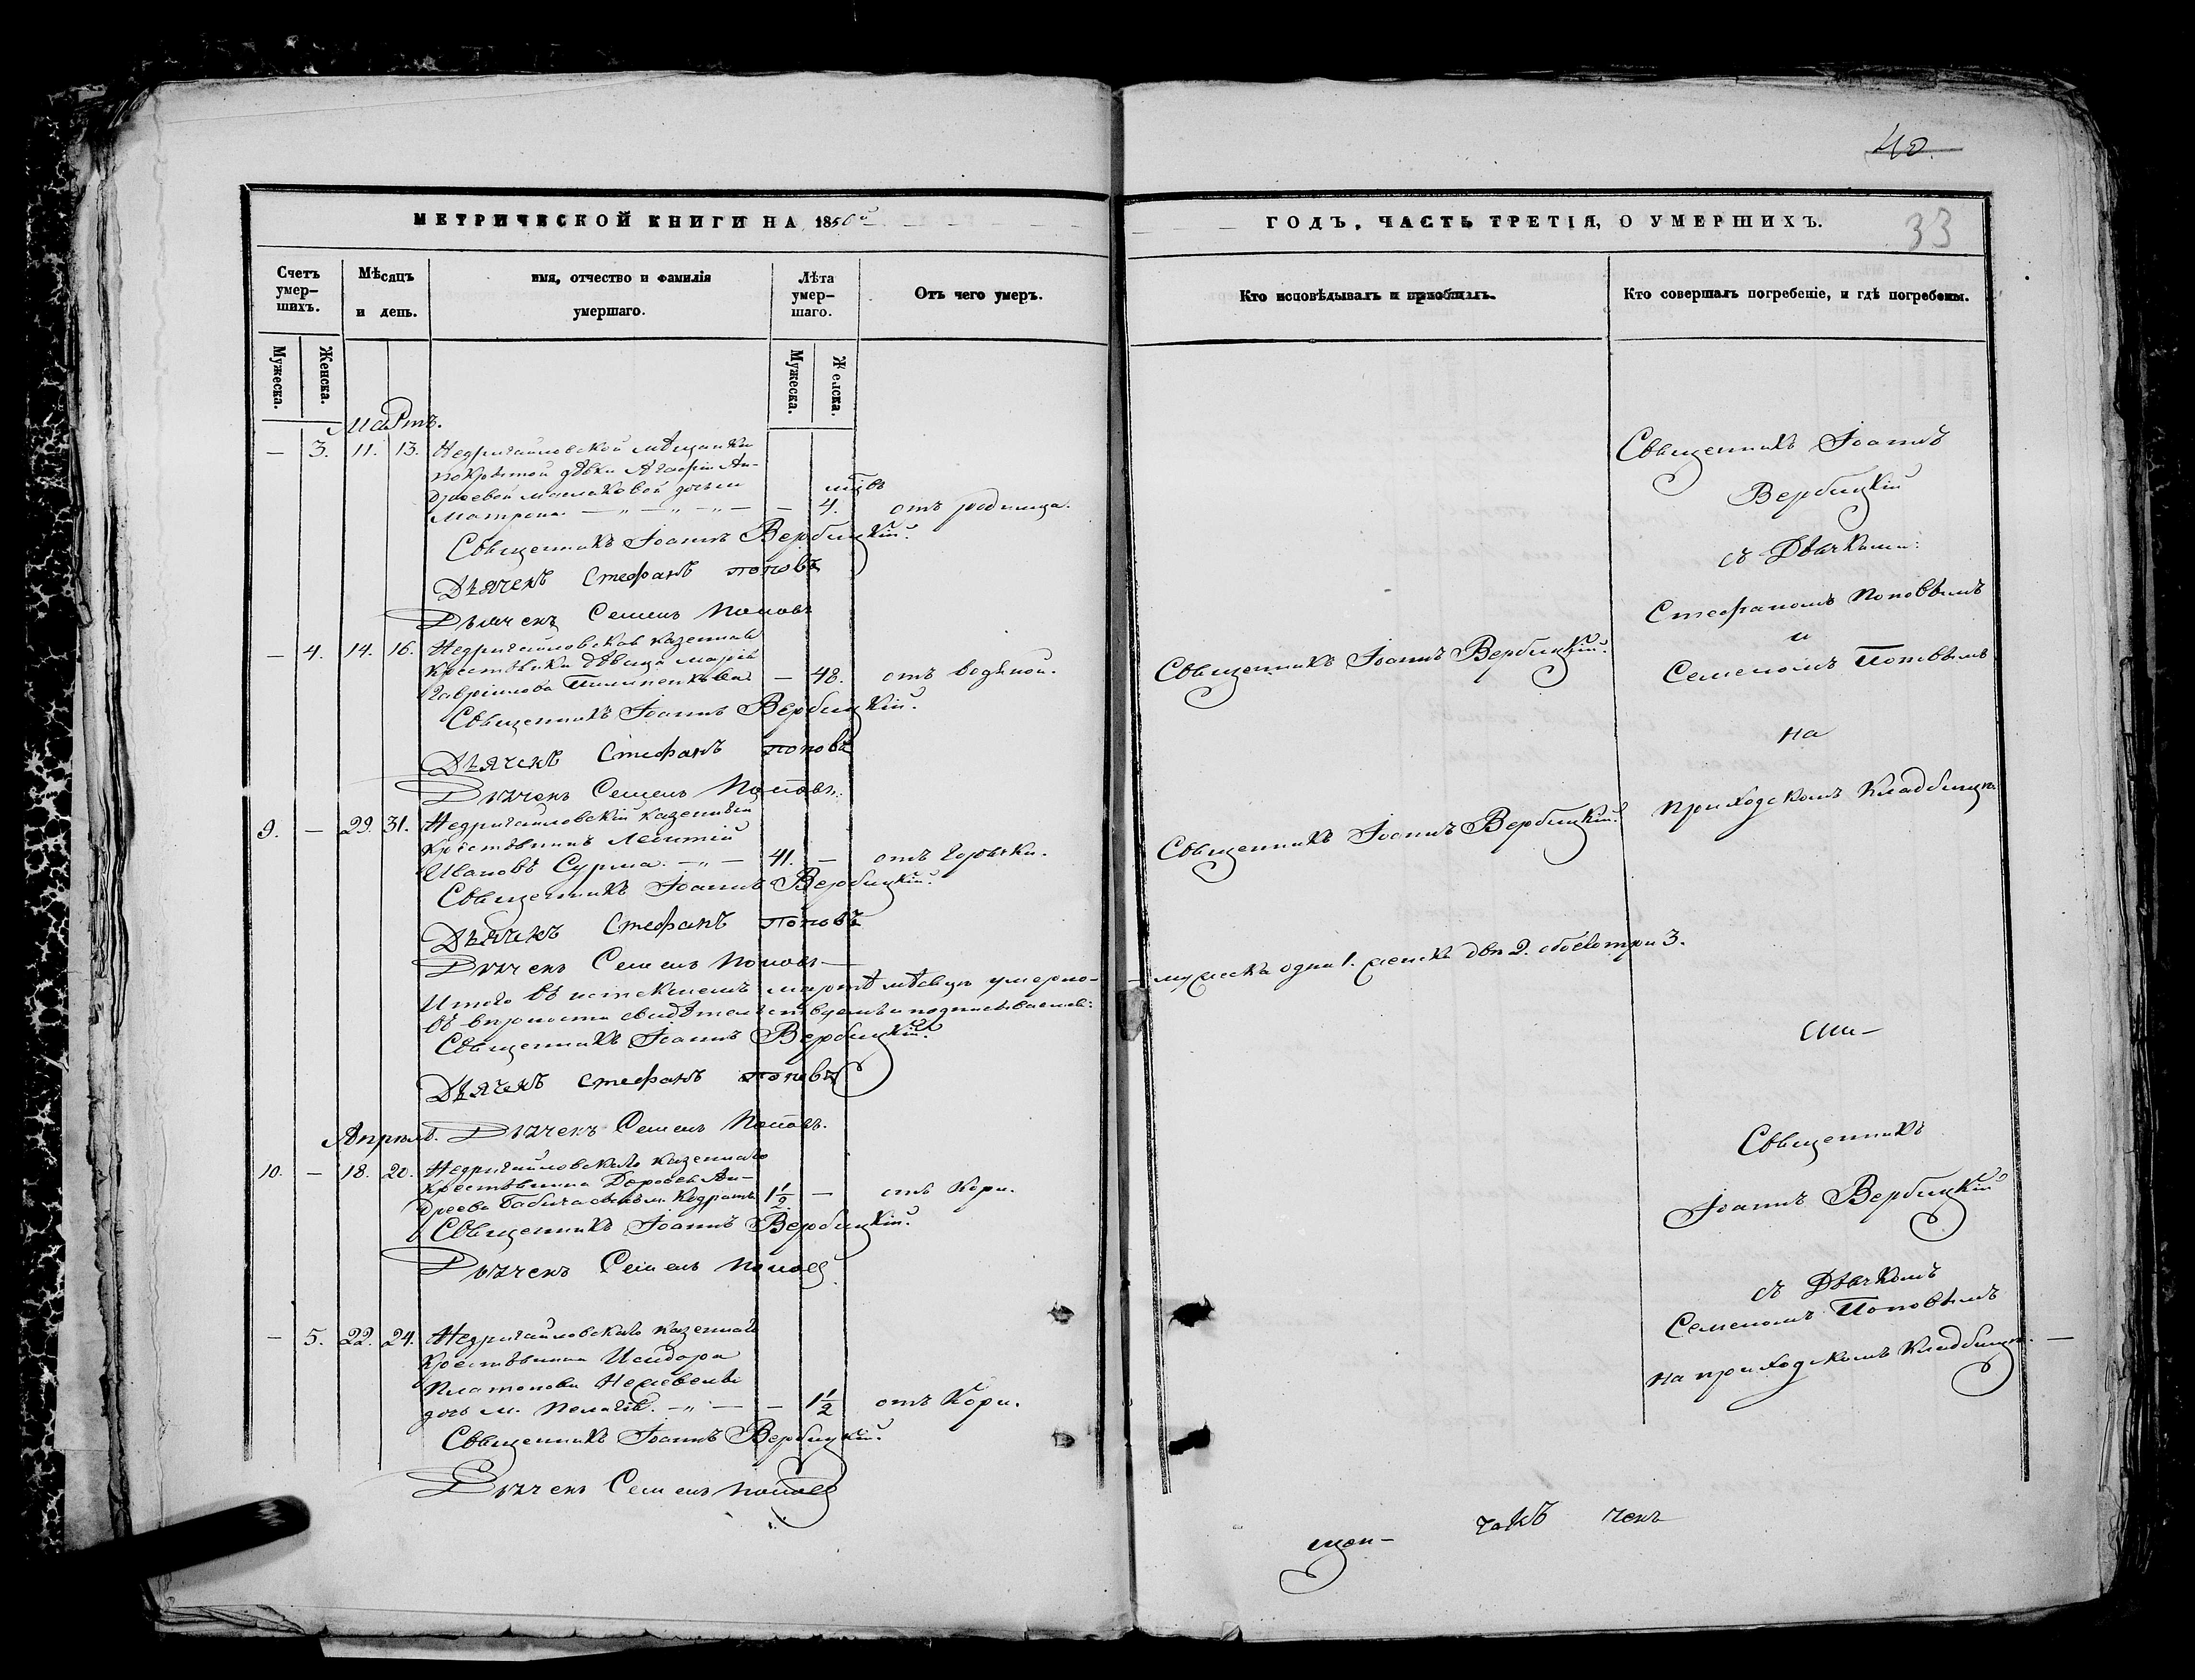 40.
МЕТРИЧЕСКОЙ КНИГИ НА 1850й
ГОДЪ, ЧАСТЬ ТРЕТІЯ, О УМЕРШИХЪ.
33
Счетъ умер-
шихъ.
Мѣсяцъ
и день.
имя, отчество и фамилія
умершаго.
Лѣта
умер-
шаго.
Отъ чего умеръ.
Кто исповѣдывалъ и пріобщалъ.
Кто совершалъ погребеніе, и гдѣ погребены.
Мужеска.
Женска.
Мужеска.
Женска.
Мартъ.
— 3. 11. 13. Недригайловской мѣщанки
покрытой дѣвки Агафіи Ан-
дреевой дочь
Матрона — — — — 4. отъ родимца.
Священникъ Іоаннъ Вербицкій.
Дьячекъ Стефанъ Поповъ
Дьячекъ Семенъ Поповъ
— 4. 14. 16. Недригайловская казенная
крестьянка дѣвица Марія
Гавріилова — 48. отъ водяной.
Священникъ Іоаннъ Вербицкій.
Дьячекъ Стефанъ Поповъ
Дьячекъ Семенъ Поповъ.
9. — 29. 31. Недригайловскій казенный
крестьянинъ Леонтій
Ивановъ Сурма. — 41. — отъ горячки.
Священникъ Іоаннъ Вербицкій.
Дьячекъ Стефанъ Поповъ
Дьячекъ Семенъ Поповъ
Итого въ истекшемъ мартѣ мѣсяцѣ умерло —
въ вѣрности свидѣтельствуемъ и подписываемся:
Священникъ Іоаннъ Вербицкій.
Дьячекъ Стефанъ Поповъ
Дьячекъ Семенъ Поповъ.
Апрѣль.
10. — 18. 20. Недригайловскаго казеннаго
крестьянина Дорофея Ан-
дреева Бабича сынъ м. Кодратъ 1 1/2 — отъ Кори.
Священникъ Іоаннъ Вербицкій.
Дьячекъ Семенъ Поповъ
— 5. 22. 24. Недригайловскаго казеннаго
крестьянина Исидора
Платонова
дочь м. Пелагія. — — 1 1/2 отъ Кори.
Священникъ Іоаннъ Вербицкій.
Дьячекъ Семенъ Поповъ
Священникъ Іоаннъ Вербицкій.
Священникъ Іоаннъ Вербицкій.
— мужеска одна 1. женска двѣ 2. обоего три 3.
Священникъ Іоаннъ
Вербицкій
съ Дьячками:
Стефаномъ Поповымъ
и
Семеномъ Поповымъ
на
приходскомъ кладбищѣ
Священникъ
Іоаннъ Вербицкій
съ Дьячкомъ
Семеномъ Поповымъ
на приходскомъ кладбищѣ. —
щен-
чекъ